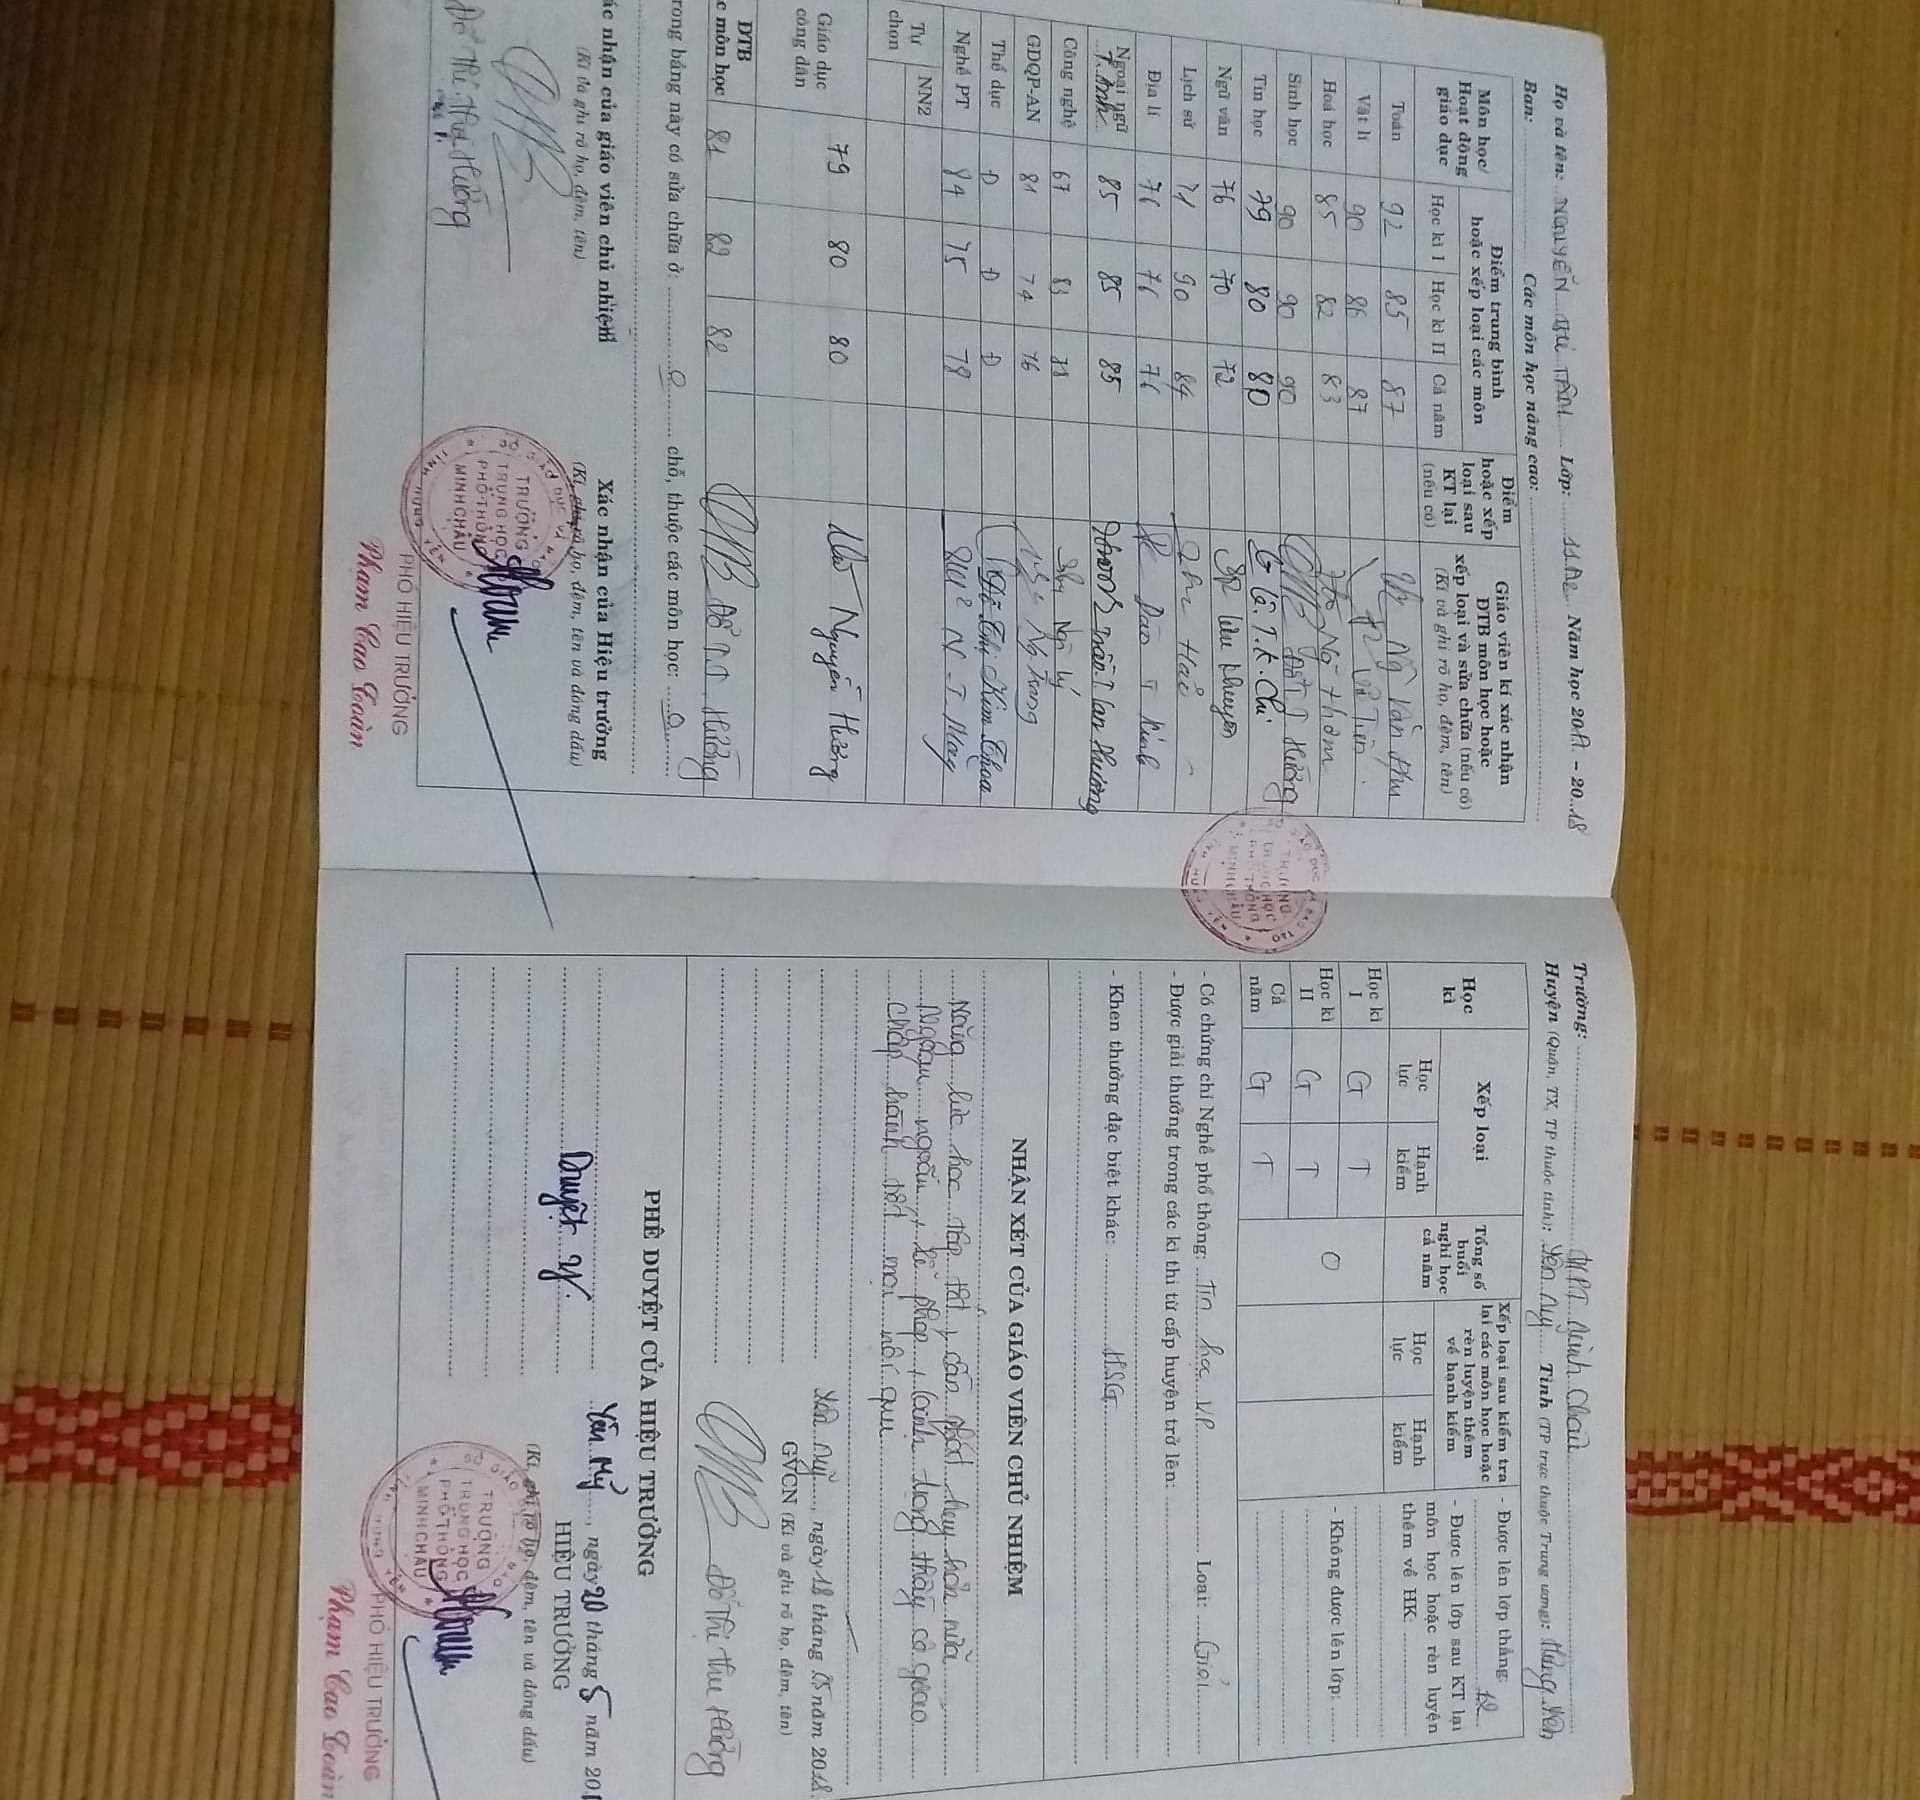 Họ và tên: NGUYỄN THỊ TÂN Lớp: 11A2 Năm học 2017 - 2018
Ban: Các môn học nâng cao:
Môn học/ Hoạt động giáo dục
Điểm trung bình hoặc xếp loại các môn
Điểm hoặc xếp loại sau KT lại (nếu có)
Giáo viên kí xác nhận ĐTB môn học hoặc xếp loại và sửa chữa (nếu có) (Kí và ghi rõ họ, đệm, tên)
Học kì I Học kì II Cả năm
Toán 92 85 87
Vật lí 90 86 87
Hoá học 85 82 83
Sinh học 90 90 90
Tin học 79 80 80 L.T.K.Chi
Ngữ văn 76 70 72
Lịch sử 71 90 84
Địa lí 76 76 76
Ngoại ngữ T.Anh 85 85 85 Trần T Lan Phương
Công nghệ 67 83 78
GDQP-AN 81 74 76
Thể dục Đ Đ Đ Đỗ Thị Kim Thoa
Nghề PT 84 75 78
Tự chọn
NN2
Giáo dục công dân 79 80 80 Nguyễn Hường
ĐTB các môn học 81 82 82 Đỗ T.T. Hường
rong bảng này có sửa chữa ở: 0 chỗ, thuộc các môn học: 0
ác nhận của giáo viên chủ nhiệm
(Kí và ghi rõ họ, đệm, tên)
Đỗ Thị Thu Hường
Xác nhận của Hiệu trưởng
(Kí, ghi rõ họ, đệm, tên và đóng dấu)
TRƯỜNG
TRUNG HỌC
PHỔ THÔNG
MINH CHÂU
PHÓ HIỆU TRƯỞNG
Phạm Cao Toàn
Trường: THPT Minh Châu
Huyện (Quận, TX, TP thuộc tỉnh): Yên Mỹ Tỉnh (TP trực thuộc Trung ương): Hưng Yên
Học kì
Xếp loại
Tổng số buổi nghỉ học cả năm
Xếp loại sau kiểm tra lại các môn học hoặc rèn luyện thêm về hạnh kiểm
Học lực Hạnh kiểm
Học lực Hạnh kiểm
Học kì I G T
Học kì II G T 0
Cả năm G T
- Được lên lớp thẳng: 12
- Được lên lớp sau KT lại môn học hoặc rèn luyện thêm về HK:
- Không được lên lớp:
- Có chứng chỉ Nghề phổ thông: Tin học VP Loại: Giỏi
- Được giải thưởng trong các kì thi từ cấp huyện trở lên:
- Khen thưởng đặc biệt khác: HSG
NHẬN XÉT CỦA GIÁO VIÊN CHỦ NHIỆM
Năng lực học tập tốt, cần phát huy hơn nữa
Ngoan ngoãn, lễ phép, kính trọng thầy cô giáo
Chấp hành tốt mọi nội quy
Yên Mỹ, ngày 18 tháng 05 năm 2018
GVCN (Kí và ghi rõ họ, đệm, tên)
Đỗ Thị Thu Hường
PHÊ DUYỆT CỦA HIỆU TRƯỞNG
Duyệt
Yên Mỹ, ngày 20 tháng 5 năm 201
HIỆU TRƯỞNG
(Kí, ghi rõ họ, đệm, tên và đóng dấu)
TRƯỜNG
TRUNG HỌC
PHỔ THÔNG
MINH CHÂU
PHÓ HIỆU TRƯỞNG
Phạm Cao Toàn